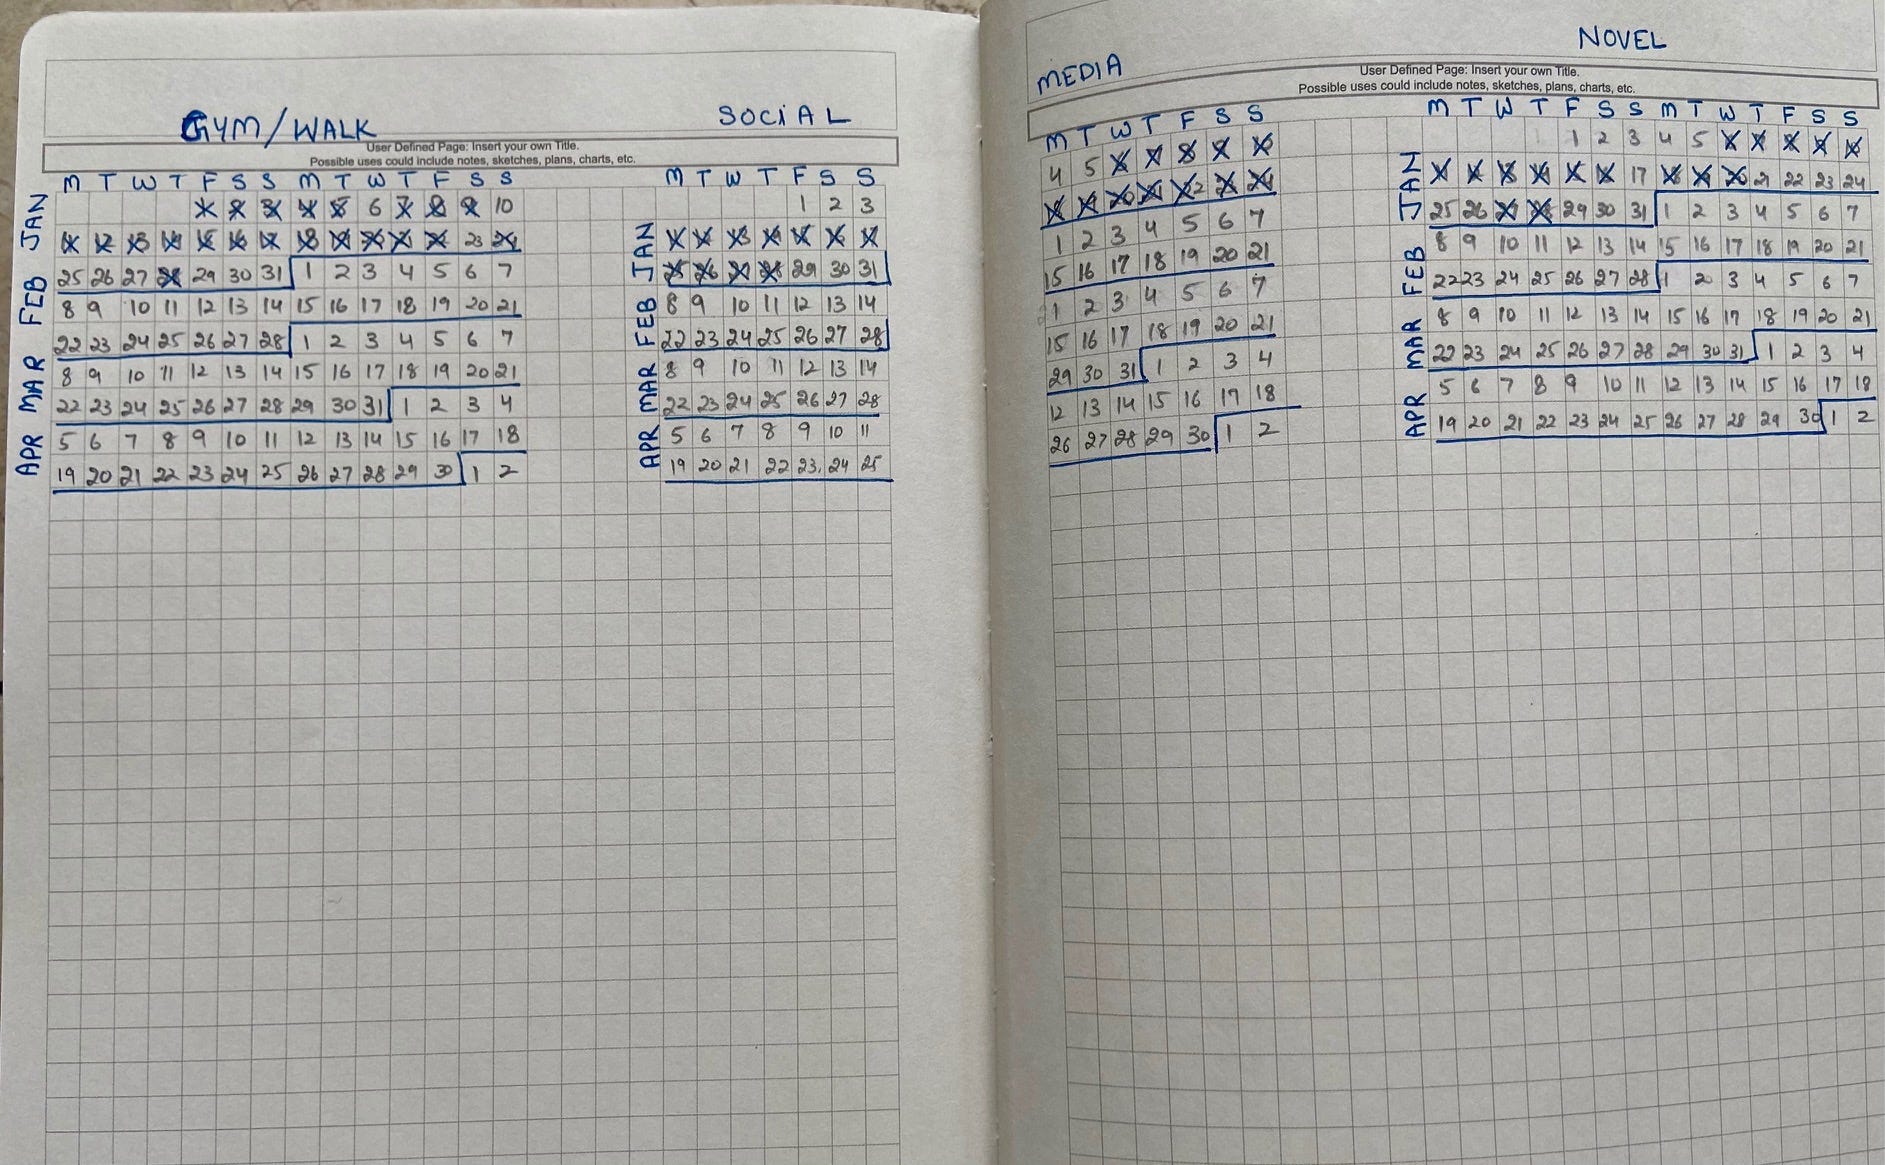 GYM/WALK SOCIAL
User Defined Page: Insert your own Title.
Possible uses could include notes, sketches, plans, charts, etc.
M T W T F S S M T W T F S S
JAN
1 2 3 4 5 6 7 8 9 10
11 12 13 14 15 16 17 18 19 20 21 22 23 24
25 26 27 28 29 30 31 1 2 3 4 5 6 7
FEB
8 9 10 11 12 13 14 15 16 17 18 19 20 21
22 23 24 25 26 27 28 1 2 3 4 5 6 7
MAR
8 9 10 11 12 13 14 15 16 17 18 19 20 21
22 23 24 25 26 27 28 29 30 31 1 2 3 4
APR
5 6 7 8 9 10 11 12 13 14 15 16 17 18
19 20 21 22 23 24 25 26 27 28 29 30 1 2
M T W T F S S
1 2 3
JAN
11 12 13 14 15 16 17
25 26 27 28 29 30 31
FEB
8 9 10 11 12 13 14
22 23 24 25 26 27 28
MAR
8 9 10 11 12 13 14
22 23 24 25 26 27 28
APR
5 6 7 8 9 10 11
19 20 21 22 23 24 25
MEDIA NOVEL
User Defined Page: Insert your own Title.
Possible uses could include notes, sketches, plans, charts, etc.
M T W T F S S
4 5 6 7 8 9 10
18 19 20 21 22 23 24
1 2 3 4 5 6 7
15 16 17 18 19 20 21
1 2 3 4 5 6 7
15 16 17 18 19 20 21
29 30 31 1 2 3 4
12 13 14 15 16 17 18
26 27 28 29 30 1 2
M T W T F S S M T W T F S S
1 2 3 4 5 6 7 8 9 10
JAN
11 12 13 14 15 16 17 18 19 20 21 22 23 24
25 26 27 28 29 30 31 1 2 3 4 5 6 7
FEB
8 9 10 11 12 13 14 15 16 17 18 19 20 21
22 23 24 25 26 27 28 1 2 3 4 5 6 7
MAR
8 9 10 11 12 13 14 15 16 17 18 19 20 21
22 23 24 25 26 27 28 29 30 31 1 2 3 4
APR
5 6 7 8 9 10 11 12 13 14 15 16 17 18
19 20 21 22 23 24 25 26 27 28 29 30 1 2